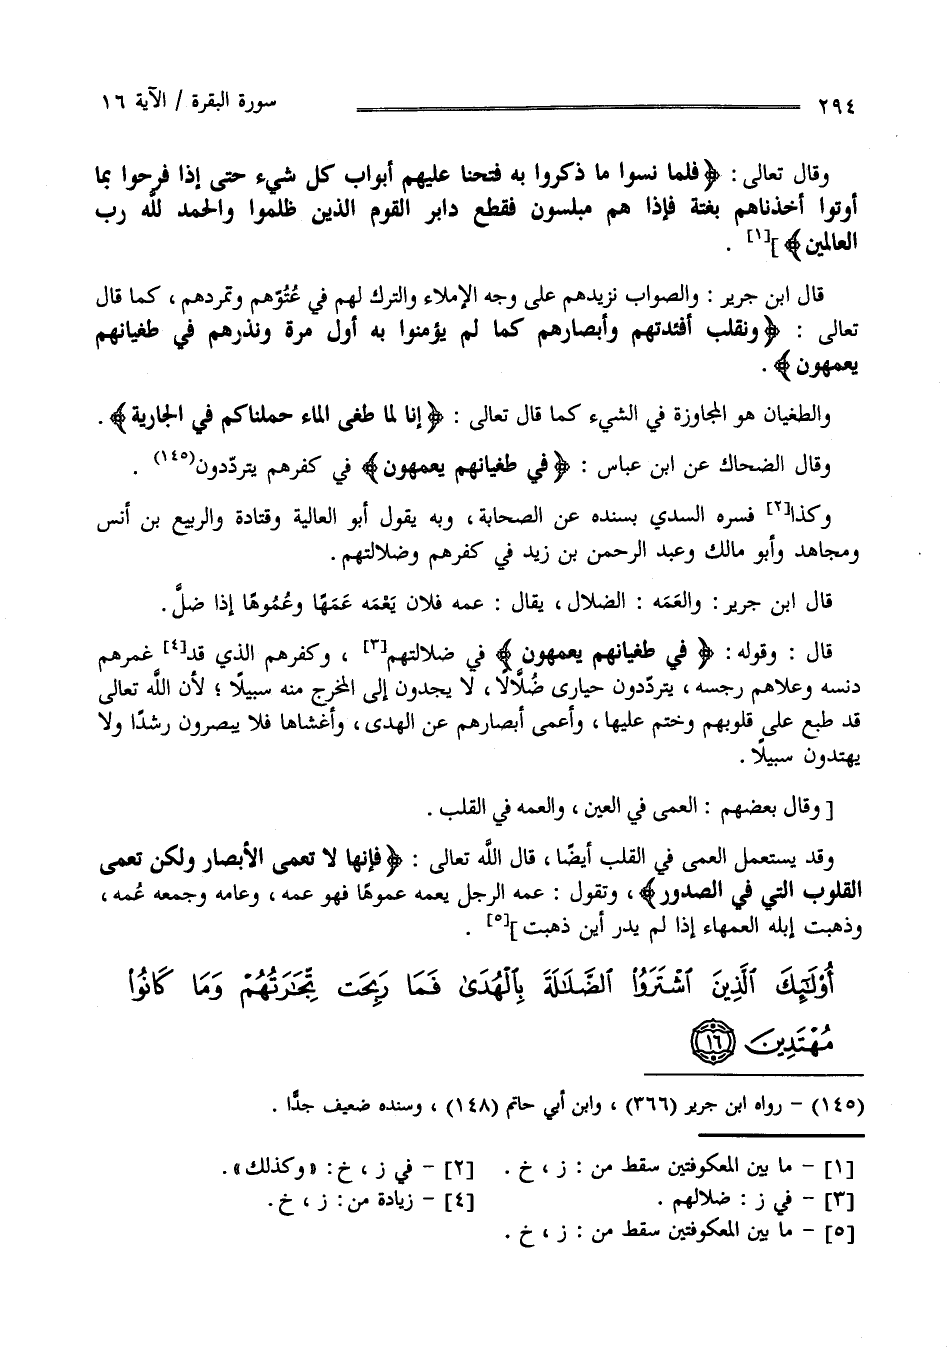 ٢٩٤ سورة البقرة / الآية ١٦
وقال تعالى : ﴿ فلما نسوا ما ذكروا به فتحنا عليهم أبواب كل شيء حتى إذا فرحوا بما
أوتوا أخذناهم بغتة فإذا هم مبلسون فقطع دابر القوم الذين ظلموا والحمد للَّه رب
العالمين ﴾][١] .
قال ابن جرير : والصواب نزيدهم على وجه الإملاء والترك لهم في عُتُوّهم وتمردهم ، كما قال
تعالى : ﴿ ونقلب أفئدتهم وأبصارهم كما لم يؤمنوا به أول مرة ونذرهم في طغيانهم
يعمهون ﴾ .
والطغيان هو المجاوزة في الشيء كما قال تعالى : ﴿ إنا لما طغى الماء حملناكم في الجارية ﴾ .
وقال الضحاك عن ابن عباس : ﴿ في طغيانهم يعمهون ﴾ في كفرهم يتردّدون(١٤٥) .
وكذا[٢] فسره السدي بسنده عن الصحابة ، وبه يقول أبو العالية وقتادة والربيع بن أنس
ومجاهد وأبو مالك وعبد الرحمن بن زيد في كفرهم وضلالتهم .
قال ابن جرير : والعَمَه : الضلال ، يقال : عمه فلان يَعْمَه عَمَهًا وعُمُوهًا إذا ضلَّ .
قال : وقوله : ﴿ في طغيانهم يعمهون ﴾ في ضلالتهم[٣] ، وكفرهم الذي قد[٤] غمرهم
دنسه وعلاهم رجسه ، يتردّدون حيارى ضُلَّالًا ، لا يجدون إلى المخرج منه سبيلًا ؛ لأن اللَّه تعالى
قد طبع على قلوبهم وختم عليها ، وأعمى أبصارهم عن الهدى ، وأغشاها فلا يبصرون رشدًا ولا
يهتدون سبيلًا .
[ وقال بعضهم : العمى في العين ، والعمه في القلب .
وقد يستعمل العمى في القلب أيضًا ، قال اللَّه تعالى : ﴿ فإنها لا تعمى الأبصار ولكن تعمى
القلوب التي في الصدور ﴾ ، وتقول : عمه الرجل يعمه عموهًا فهو عمه ، وعامه وجمعه عُمه ،
وذهبت إبله العمهاء إذا لم يدر أين ذهبت ][٥] .
أُوْلَٰٓئِكَ ٱلَّذِينَ ٱشْتَرَوُا۟ ٱلضَّلَٰلَةَ بِٱلْهُدَىٰ فَمَا رَبِحَت تِّجَٰرَتُهُمْ وَمَا كَانُوا۟
مُهْتَدِينَ ١٦
(١٤٥) - رواه ابن جرير (٣٦٦) ، وابن أبي حاتم (١٤٨) ، وسنده ضعيف جدًّا .
[١] - ما بين المعكوفتين سقط من : ز ، خ . [٢] - في ز ، خ : « وكذلك » .
[٣] - في ز : ضلالهم . [٤] - زيادة من : ز ، خ .
[٥] - ما بين المعكوفتين سقط من : ز ، خ .